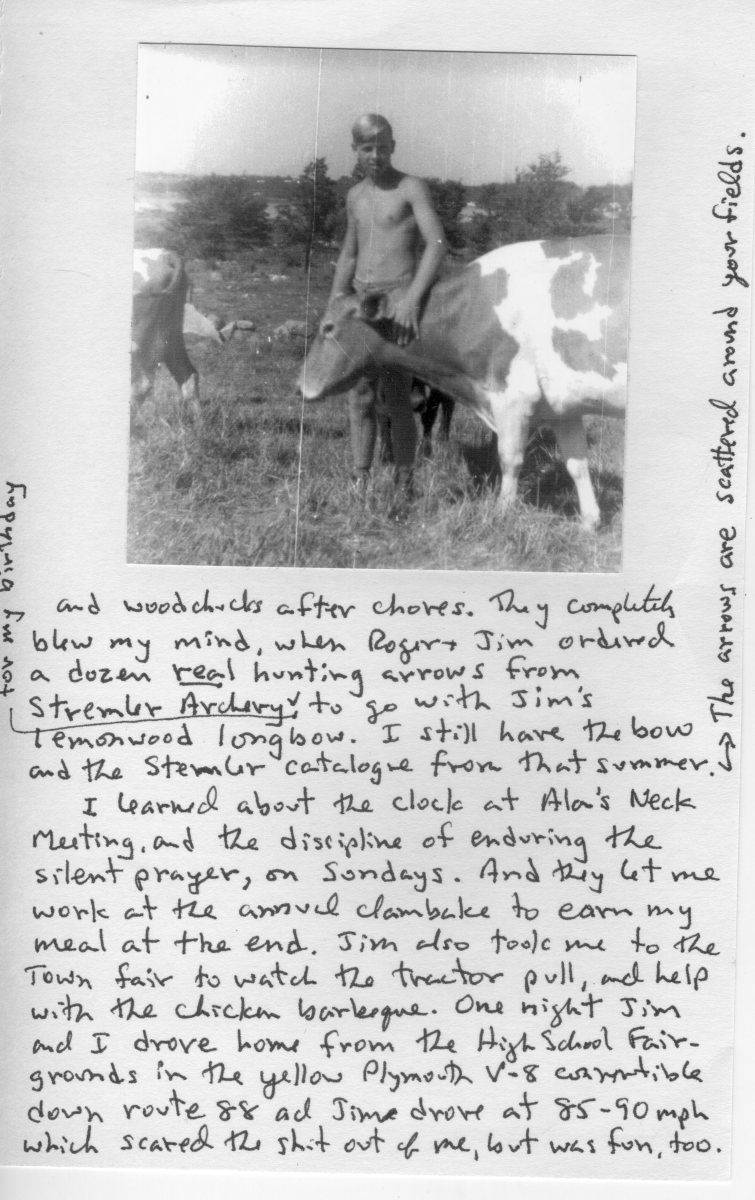 and woodchucks after chores. They completely
blew my mind, when Roger + Jim ordered
a dozen real hunting arrows from
Stremler Archery, to go with Jim's
for my birthday
lemonwood longbow. I still have the bow
and the Stemler catalogue from that summer.
→ The arrows are scattered around your fields.
I learned about the clock at Alan's Neck
Meeting, and the discipline of enduring the
silent prayer, on Sundays. And they let me
work at the annual clambake to earn my
meal at the end. Jim also took me to the
Town fair to watch the tractor pull, and help
with the chicken barbeque. One night Jim
and I drove home from the High School Fair-
grounds in the yellow Plymouth V-8 convertible
down route 88 ad Jime drove at 85-90 mph
which scared the shit out of me, but was fun, too.